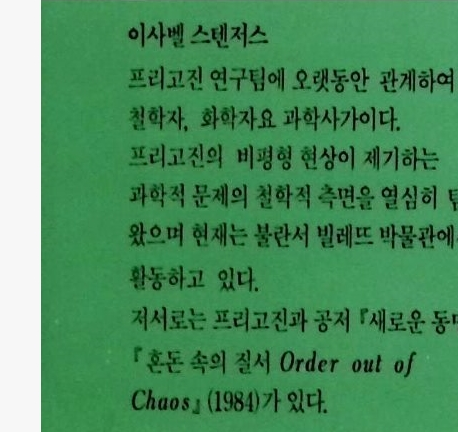 이사벨 스텐저스
프리고진 연구팀에 오랫동안 관계하여
철학자, 화학자요 과학사가이다.
프리고진의 비평형 현상이 제기하는
과학적 문제의 철학적 측면을 열심히
왔으며 현재는 불란서 빌레뜨 박물관에
활동하고 있다.
저서로는 프리고진과 공저 『새로운
『혼돈 속의 질서 Order out of
Chaos』(1984)가 있다.